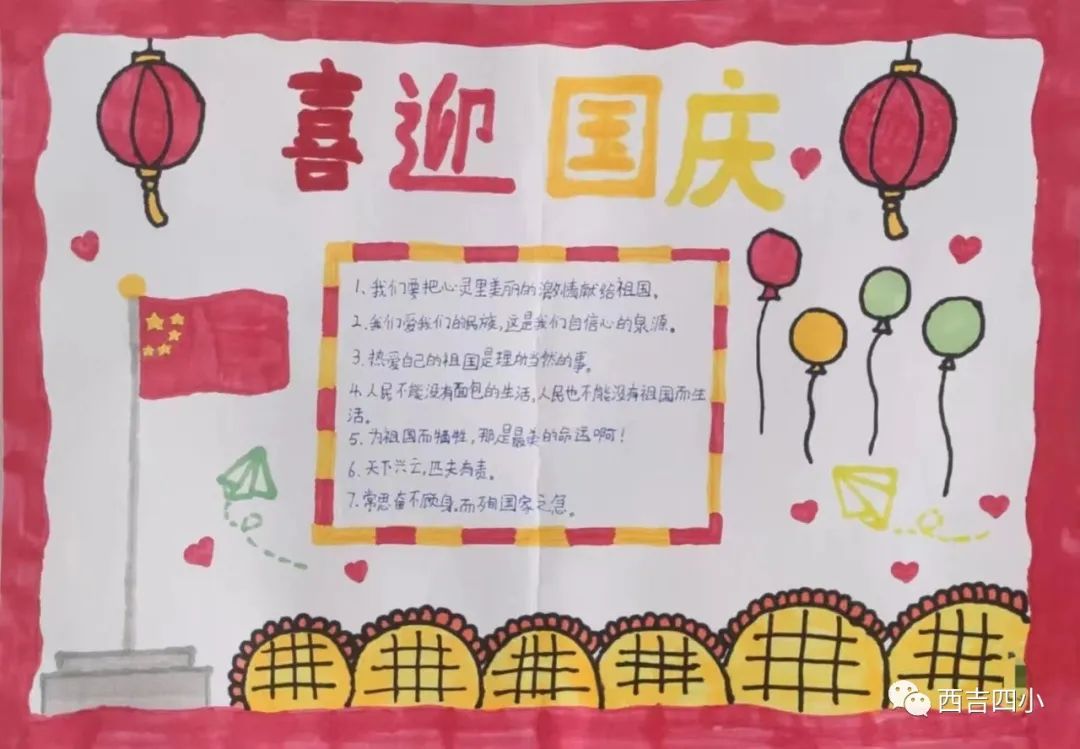 喜迎国庆
1、我们要把心灵里美丽的激情献给祖国。
2、我们爱我们的民族，这是我们自信心的泉源。
3、热爱自己的祖国是理所当然的事。
4、人民不能没有面包的生活，人民也不能没有祖国而生
活。
5、为祖国而牺牲，那是最美的命运啊！
6、天下兴亡，匹夫有责。
7、常思奋不顾身，而殉国家之急。
西吉四小